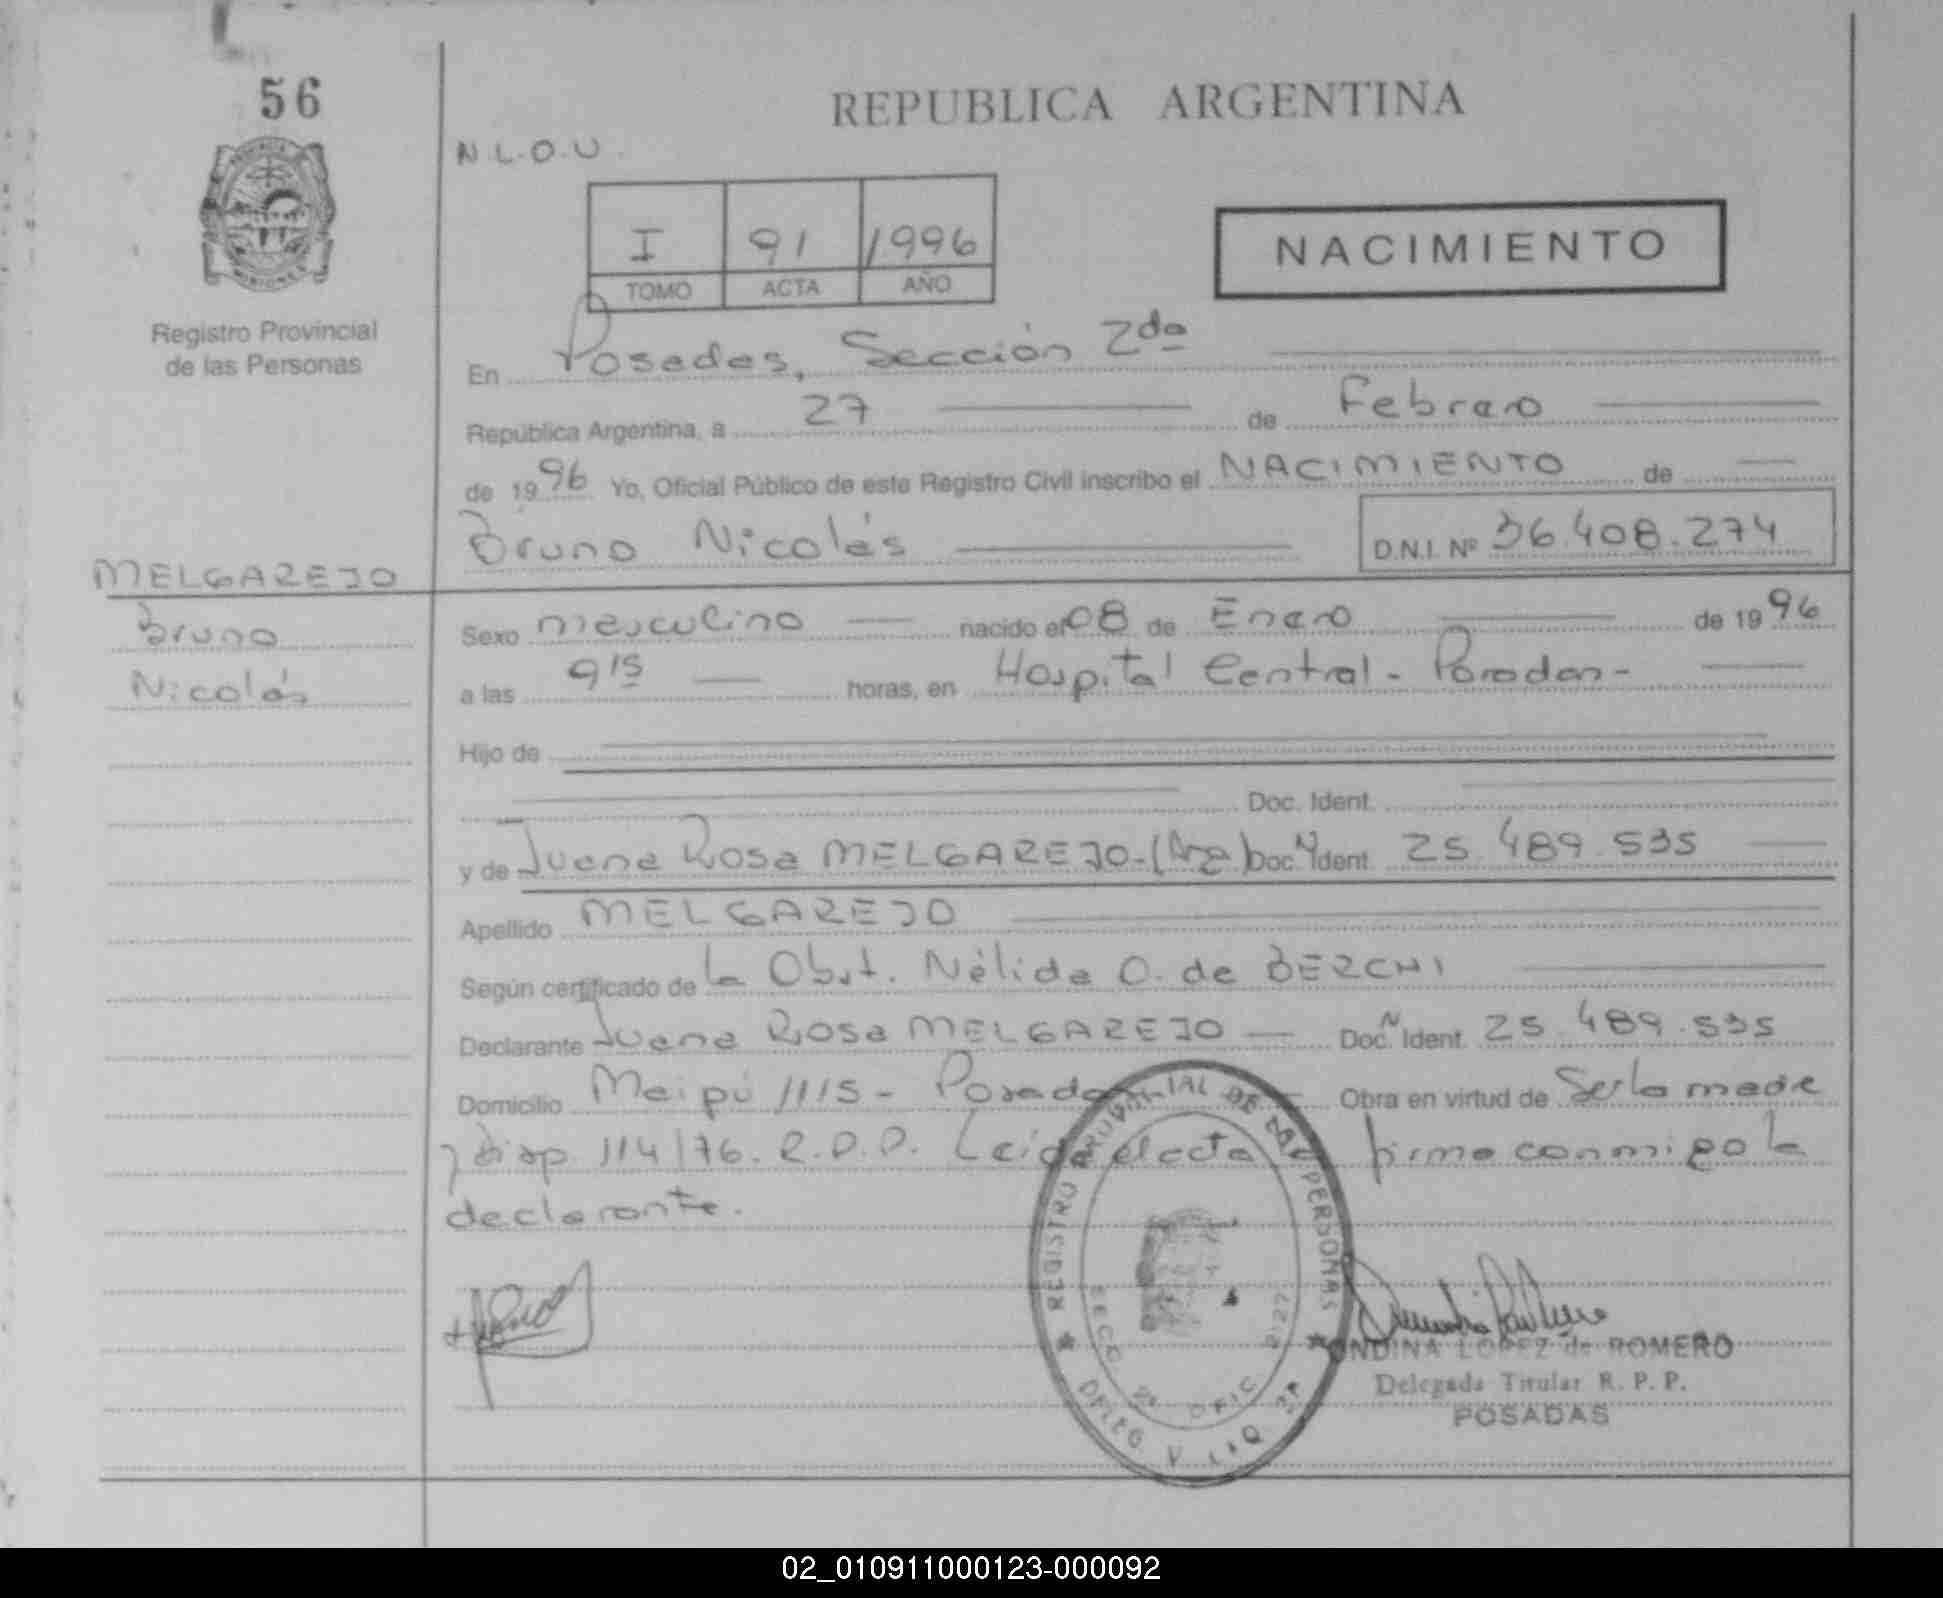 56
REPUBLICA ARGENTINA
N.L.O.U.
I 91 1996
TOMO ACTA AÑO
NACIMIENTO
Registro Provincial
de las Personas
En Posadas, Sección 2da
República Argentina, a 27 de Febrero
de 1996 Yo, Oficial Público de este Registro Civil inscribo el NACIMIENTO de
Bruno Nicolás D.N.I. Nº 36.408.274
MELGAREJO
Bruno
Nicolás
Sexo masculino nacido el 08 de Enero de 1996
a las 9 15 horas, en Hospital Central - Posadas -
Hijo de
Doc. Ident.
y de Juana Rosa MELGAREJO - (Arg) Doc. N Ident. 25.489.535
Apellido MELGAREJO
Según certificado de la Obst. Nélida O. de BERCHI
Declarante Juana Rosa MELGAREJO Doc. N Ident. 25.489.535
Domicilio Maipú 1115 - Posadas Obra en virtud de Ser la madre
y Disp. 114/76. R.P.P. Leída el acta firma conmigo la
declarante.
REGISTRO PROVINCIAL DE LAS PERSONAS
SECC 2a OFIC
DELEG
ONDINA LOPEZ de ROMERO
Delegada Titular R. P. P.
POSADAS
02_010911000123-000092